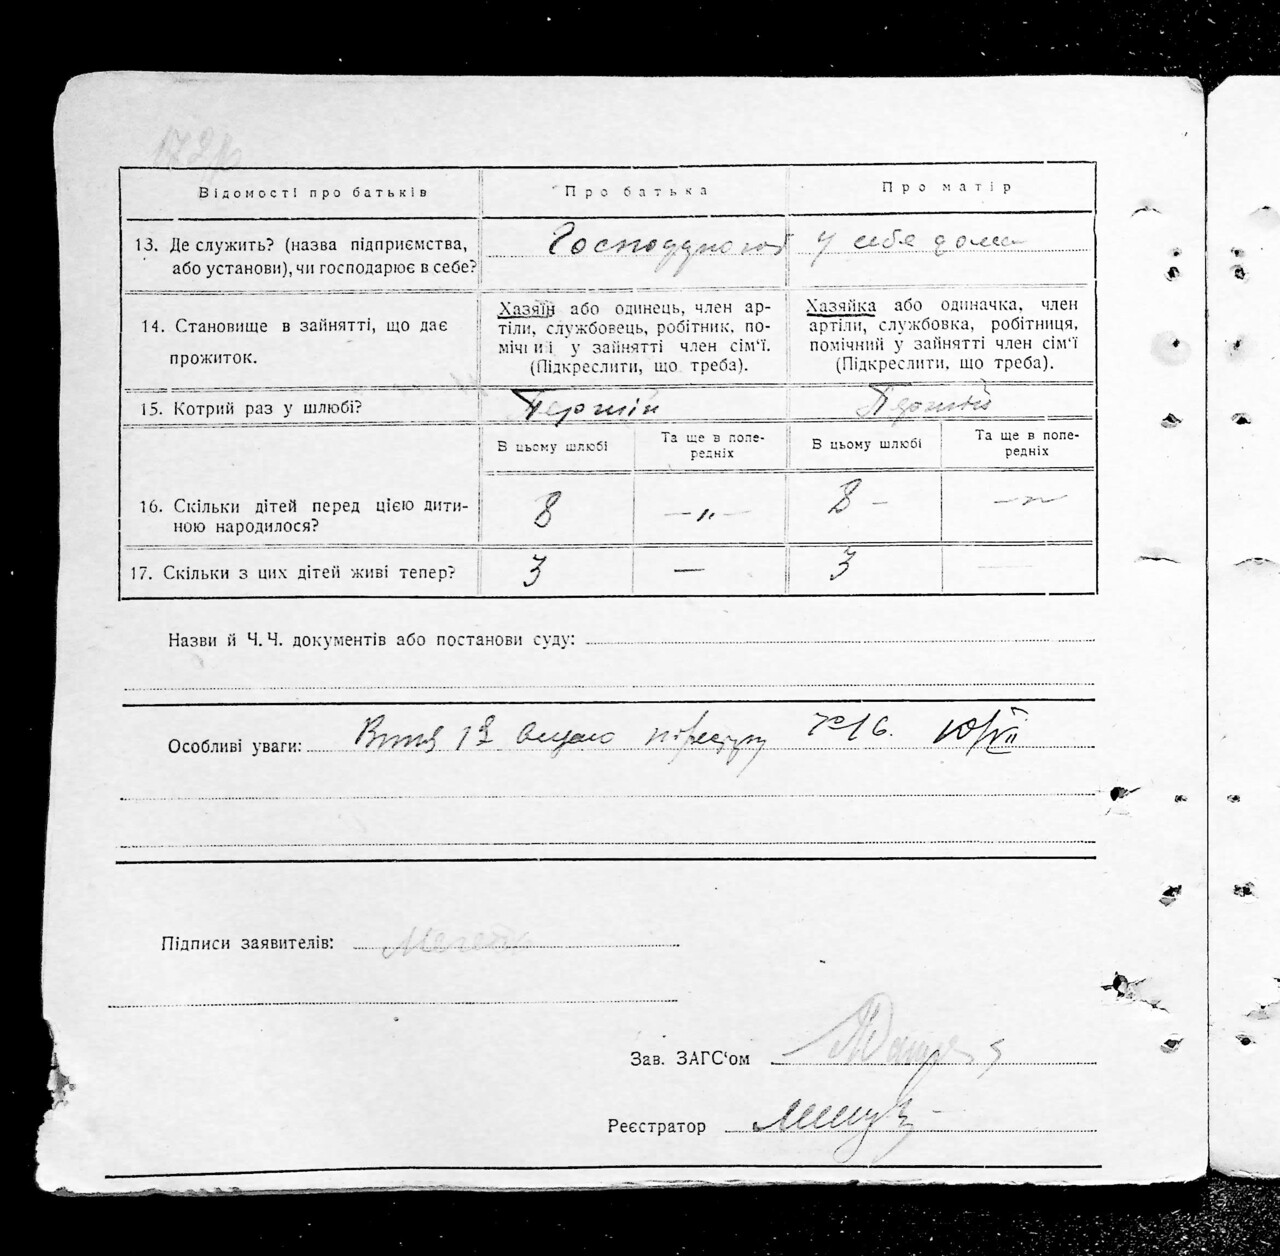 Відомості про батьків
Про батька
Про матір
13. Де служить? (назва підприємства, або установи), чи господарює в себе?
Господарюют у себя дома
14. Становище в зайнятті, що дає прожиток.
Хазяїн або одинець, член ар-
тіли, службовець, робітник, по-
мічний у зайнятті член сім'ї.
(Підкреслити, що треба).
Хазяйка або одиначка, член
артіли, службовка, робітниця,
помічний у зайнятті член сім'ї
(Підкреслити, що треба).
15. Котрий раз у шлюбі?
Перший
Перший
В цьому шлюбі
Та ще в попе-
редніх
В цьому шлюбі
Та ще в попе-
редніх
16. Скільки дітей перед цією дити-
ною народилося?
8
— „ —
8 —
— „
17. Скільки з цих дітей живі тепер?
3
—
3
—
Назви й Ч.Ч. документів або постанови суду:
Особливі уваги:
№ 16. 10/VII
Підписи заявителів:
Зав. ЗАГС'ом
Реєстратор